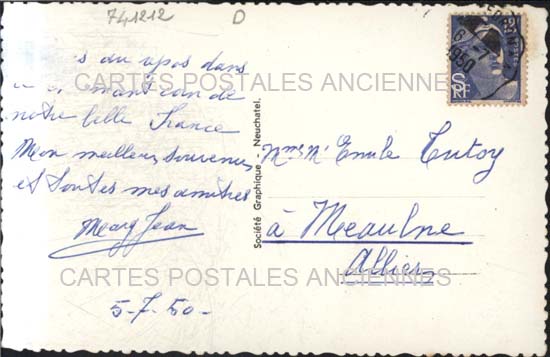 741212
D
du repos dans
coin de
notre belle France
Mon meilleur souvenir
et toutes mes amitiés
5-7-50-
Société Graphique - Neuchatel.
6-7
1950
POSTES
RF
Emile Tutoy
à Meaulne
Allier
CARTES POSTALES ANCIENNES
CARTES POSTALES ANCIENNES